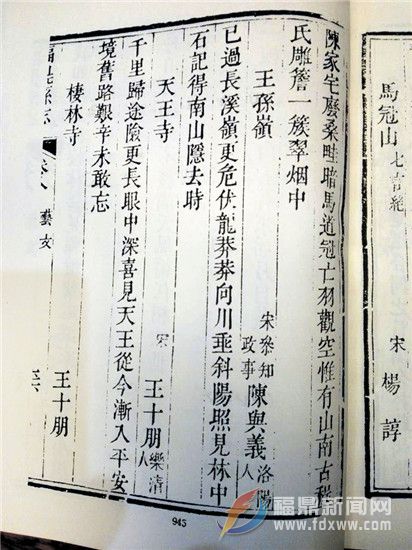 馬冠山 七言絕 宋 楊諄
陳家宅廢桑畦暗馬道冠亡羽觀空惟有山南古程
氏雕簷一簇翠烟中
王孫嶺 宋參知政事 陳與義 洛陽人
已過長溪嶺更危伏龍莽莽向川垂斜陽照見林中
石記得南山隱去時
天王寺 宋 王十朋 樂清人
千里歸途陰更長眼中深喜見天王從今漸入平安
境舊路艱辛未敢忘
棲林寺 王十朋
卷八 藝文
945
福鼎新闻网
www.fdxww.com